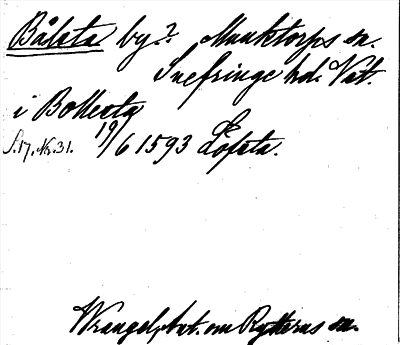 Bålsta by.? Munktorps sn.
Snefringe hd. Vat.
i Bollesta
S.17, Nr.31. 19/6 1593 Löfsta.
Wrangel, Ant. om Rytterns sn.